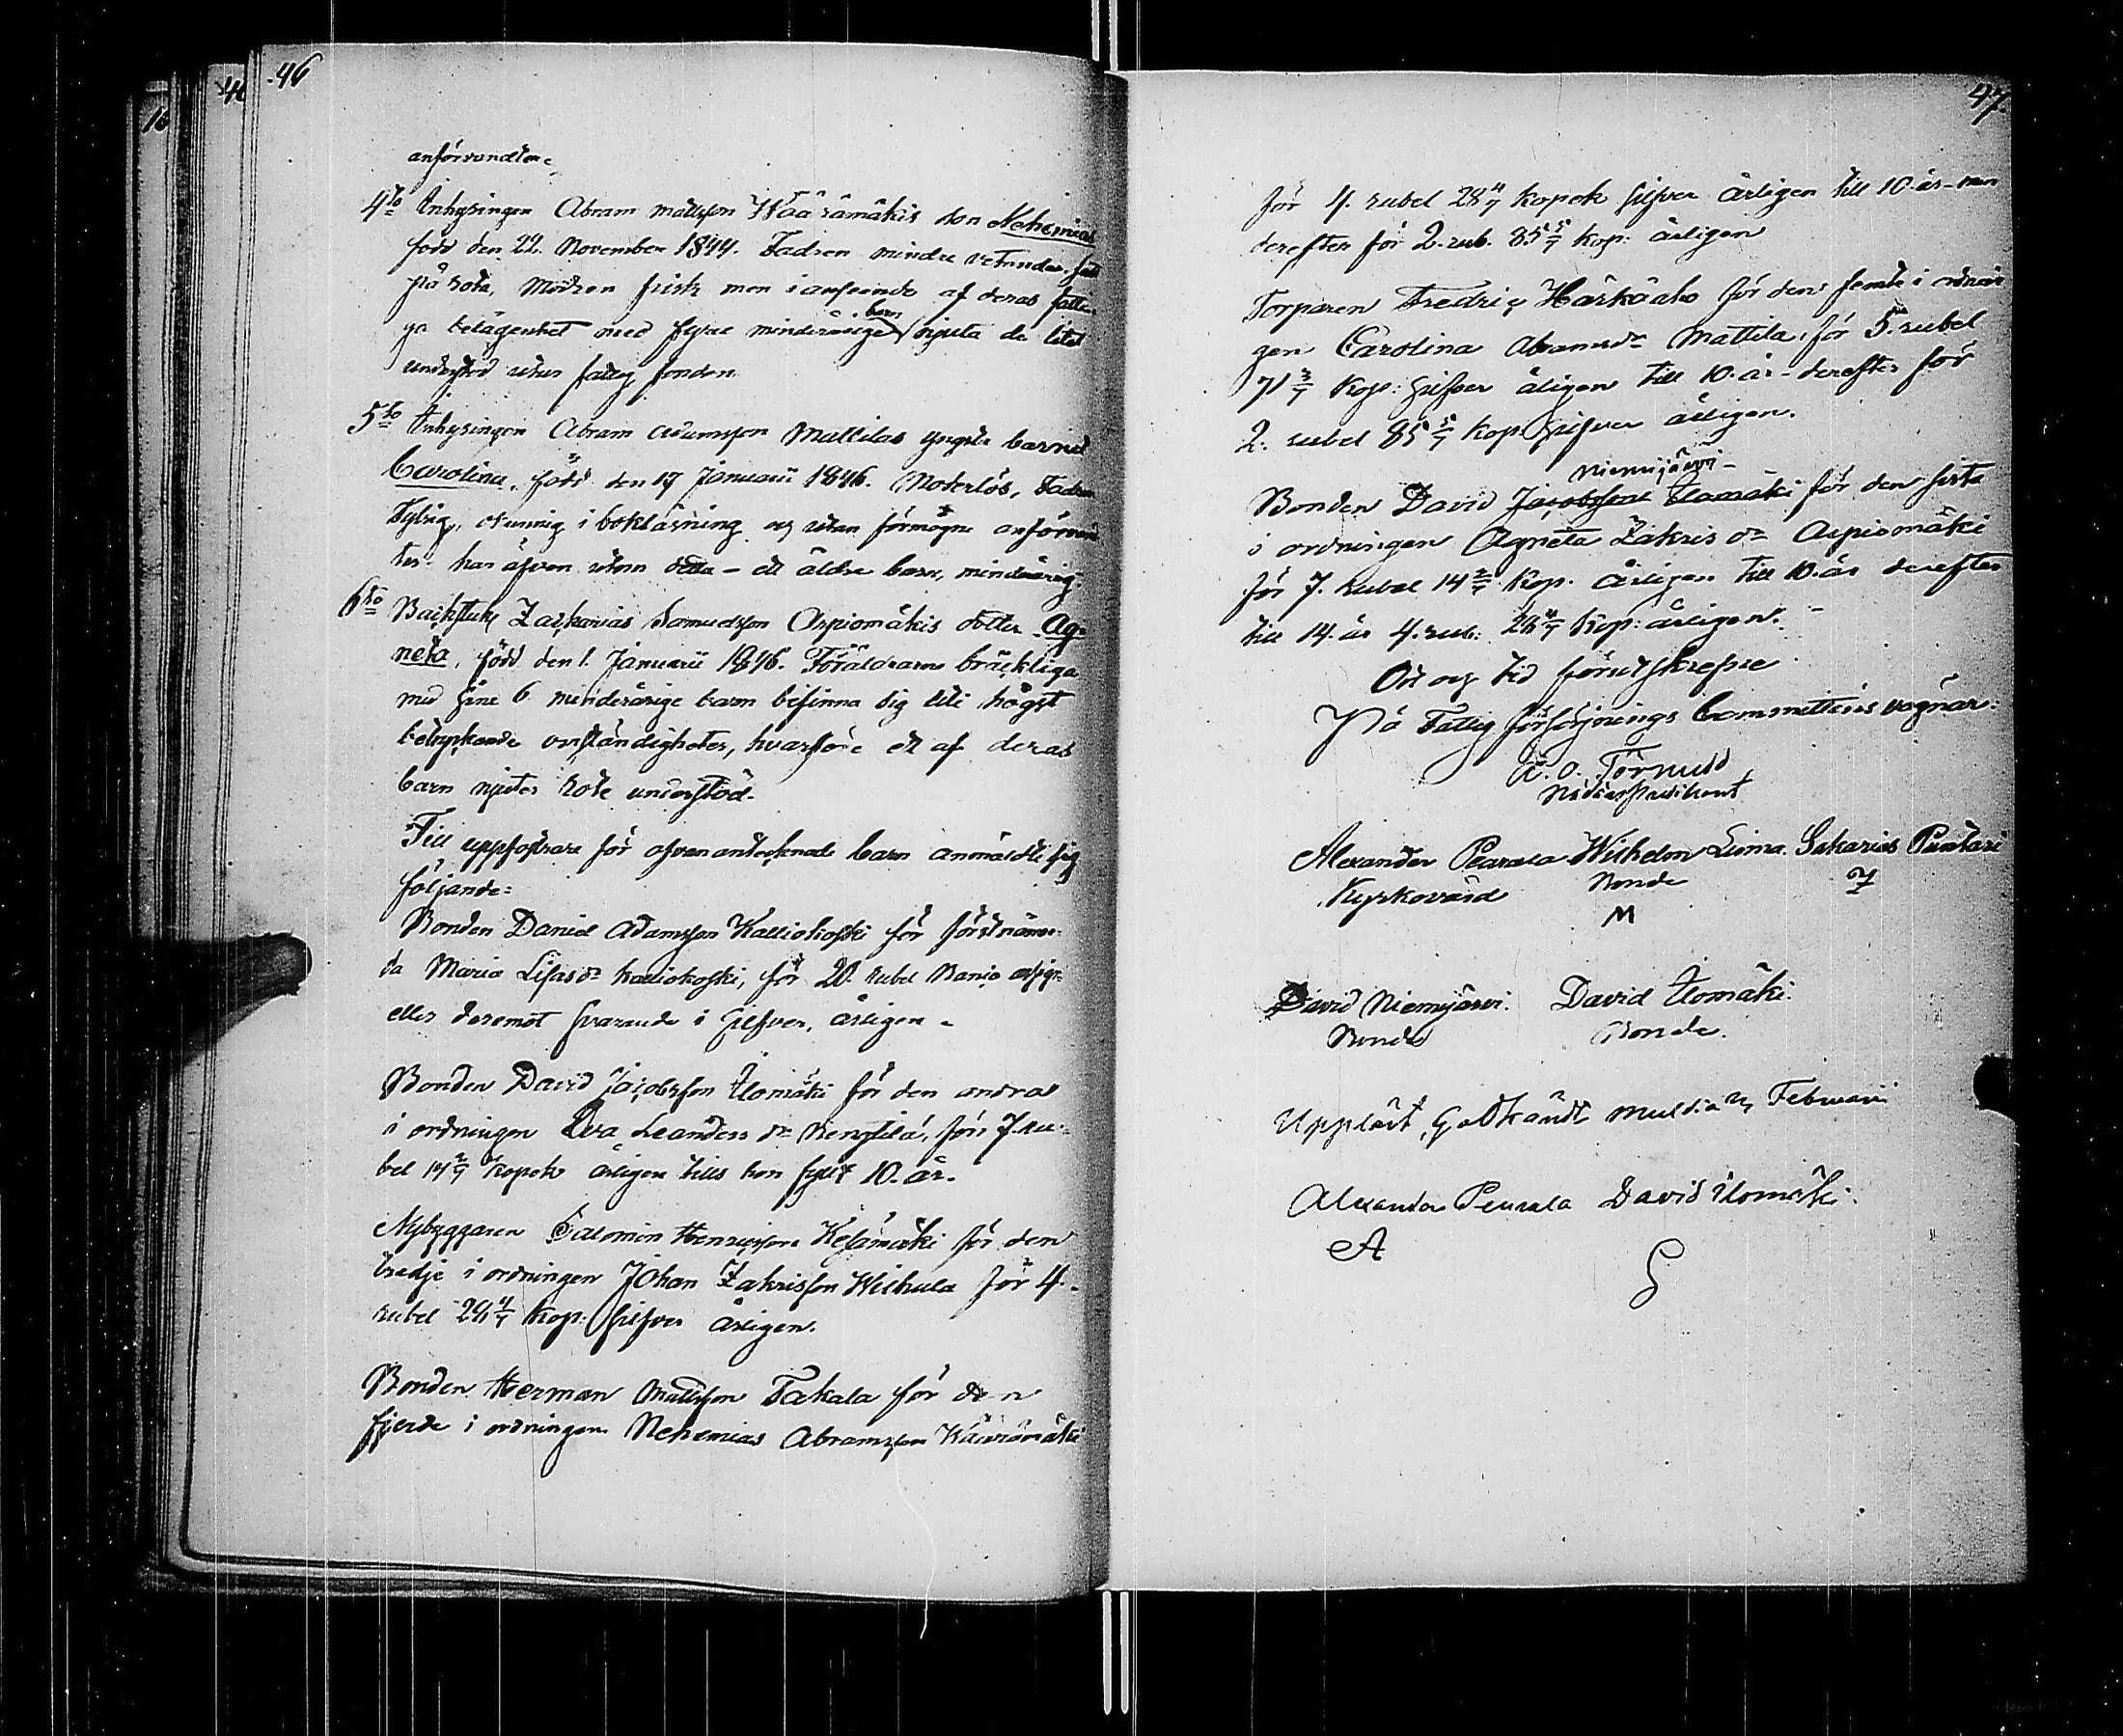 46
anförvandter.
4to Inhysingen Abram Mattsson Wäärämäkis son Nehemias
född den 22. November 1844. Fadren mindre vetande,
på rota, Modren frisk men i anseende af deras fatti-
ga belägenhet med fyra minderårige barn njuta de litet
understöd utur fattig fonden.
5to Inhysingen Abram Adamsson Mattilas yngsta barnet
Carolina, född den 17 Januarii 1846. Moderlös, Fadren
sytnig, okunnig i bokläsning och utan förmögne anförvand
ter. har äfven utom detta - ett äldre barn, minderårig.
6to Backstuk Zackarias Samuelsson Arpiomäkis dotter Ag-
neta, född den 1. Januarii 1846. Föräldrarne bräckliga
med sine 6 minderårige barn befinna sig uti högst
betryckande omständigheter, hvarföre ett af deras
barn njuter rote understöd.
Till uppfostrare för ofvanantecknade barn anmäldte sig
följande:
Bonden Daniel Adamsson Kalliokoski för förstnämn-
da Maria Lisasdr Kalliokoski, för 20. rubel Banco assign:
eller deremot svarande i Silfver, årligen.
Bonden David Jacobsson Ulomäki för den andra
i ordningen Eva Leanders dr Kenttilä, för 7. ru-
bel 14 2/7 kopek årligen tills hon fyllt 10. år.
Nybyggaren Salomon Henricsson Kesämäki för den
tredje i ordningen Johan Zakrisson Weikula för 4.
rubel 28 4/7 kop: Silfver årligen.
Bonden Herman Mattsson Takala för den
fjerde i ordningen Nehemias Abramsson Wäärämäki
47
för 4. rubel 28 4/7 kopek silfver årligen till 10-år - men
derefter för 2. rub. 85 5/7 kop: årligen
Torparen Fredric Härkäaho för den femte i ordnin
gen Carolina Abramsdr Mattila, för 5. rubel
71 3/7 kop: Silfver åligen till 10. år - derefter för
2. rubel 85 5/7 kop: Silfver årligen.
Niemijärvi
Bonden David Jacobsson Ulomäki för den sista
i ordningen Agneta Zakris dr Arpiomäki
för 7. Rubel 14 2/7 kop. årligen till 10. år derefter
till 14. år 4. rub: 28 4/7 kop: årligen.
Ort och tid förutskrefne
På Fattig försörjnings Committéns vägnar:
A. O. Törnudd
Nådårspredikant
Alexander Peurala Wilhelm Luoma. Sakarias Puntari
Kyrkovärd Bonde
M
David Niemijärvi. David Ulomäki.
Bonde Bonde.
Uppläst, Godkändt Februarii
Alexander Peurala David Ulomäki.
A